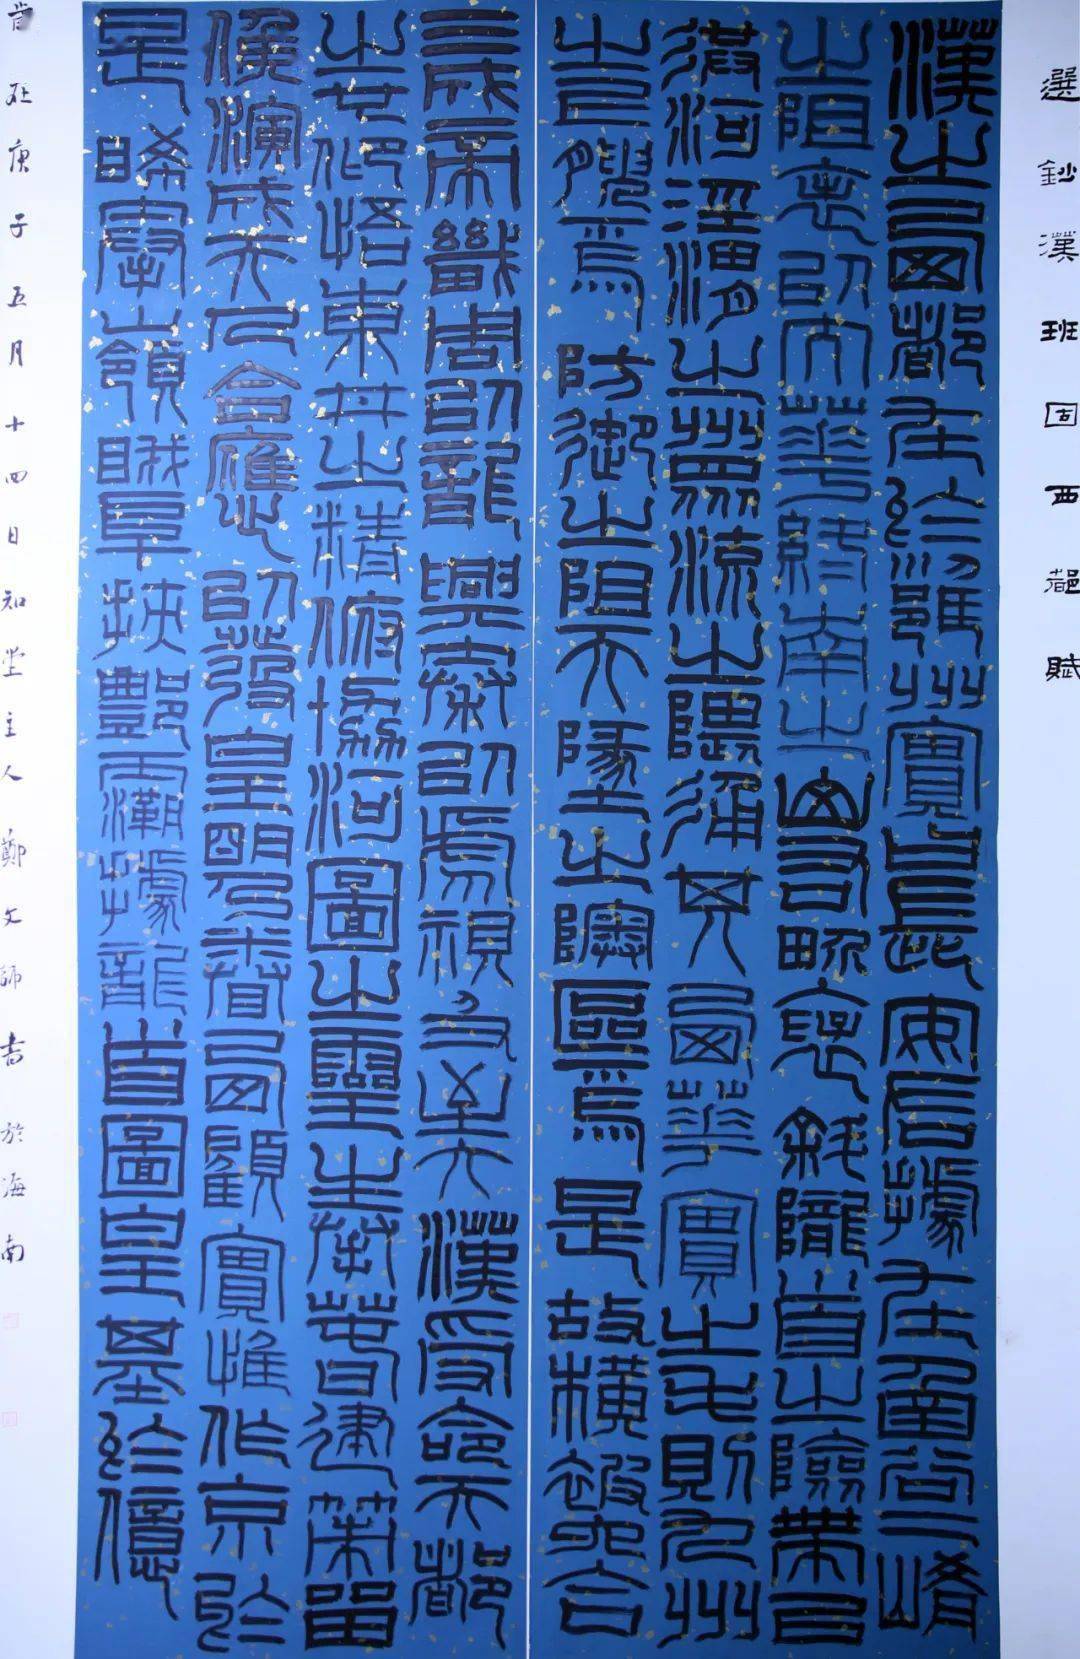 選鈔漢班固西都賦
漢之西都在於雍州實曰長安右據在函谷二崤
之阻表以太華終南之山右界褒斜隴首之險帶以
洪河涇渭之川眾流之隈涌其西華實之毛則九州
之上腴焉防御之阻天墬之隩區焉是故橫被六合
三成帝畿周以龍興秦以虎視及至大漢受命而都
之也仰悟東井之精俯協河圖之靈奉春建策留
侯演成天人合應以發皇明乃眷西顧實惟作京於
是睎秦嶺睋阜挾酆灞據龍首圖皇基於億
旹在庚子五月十四日知坐主人鄭文師書於海南